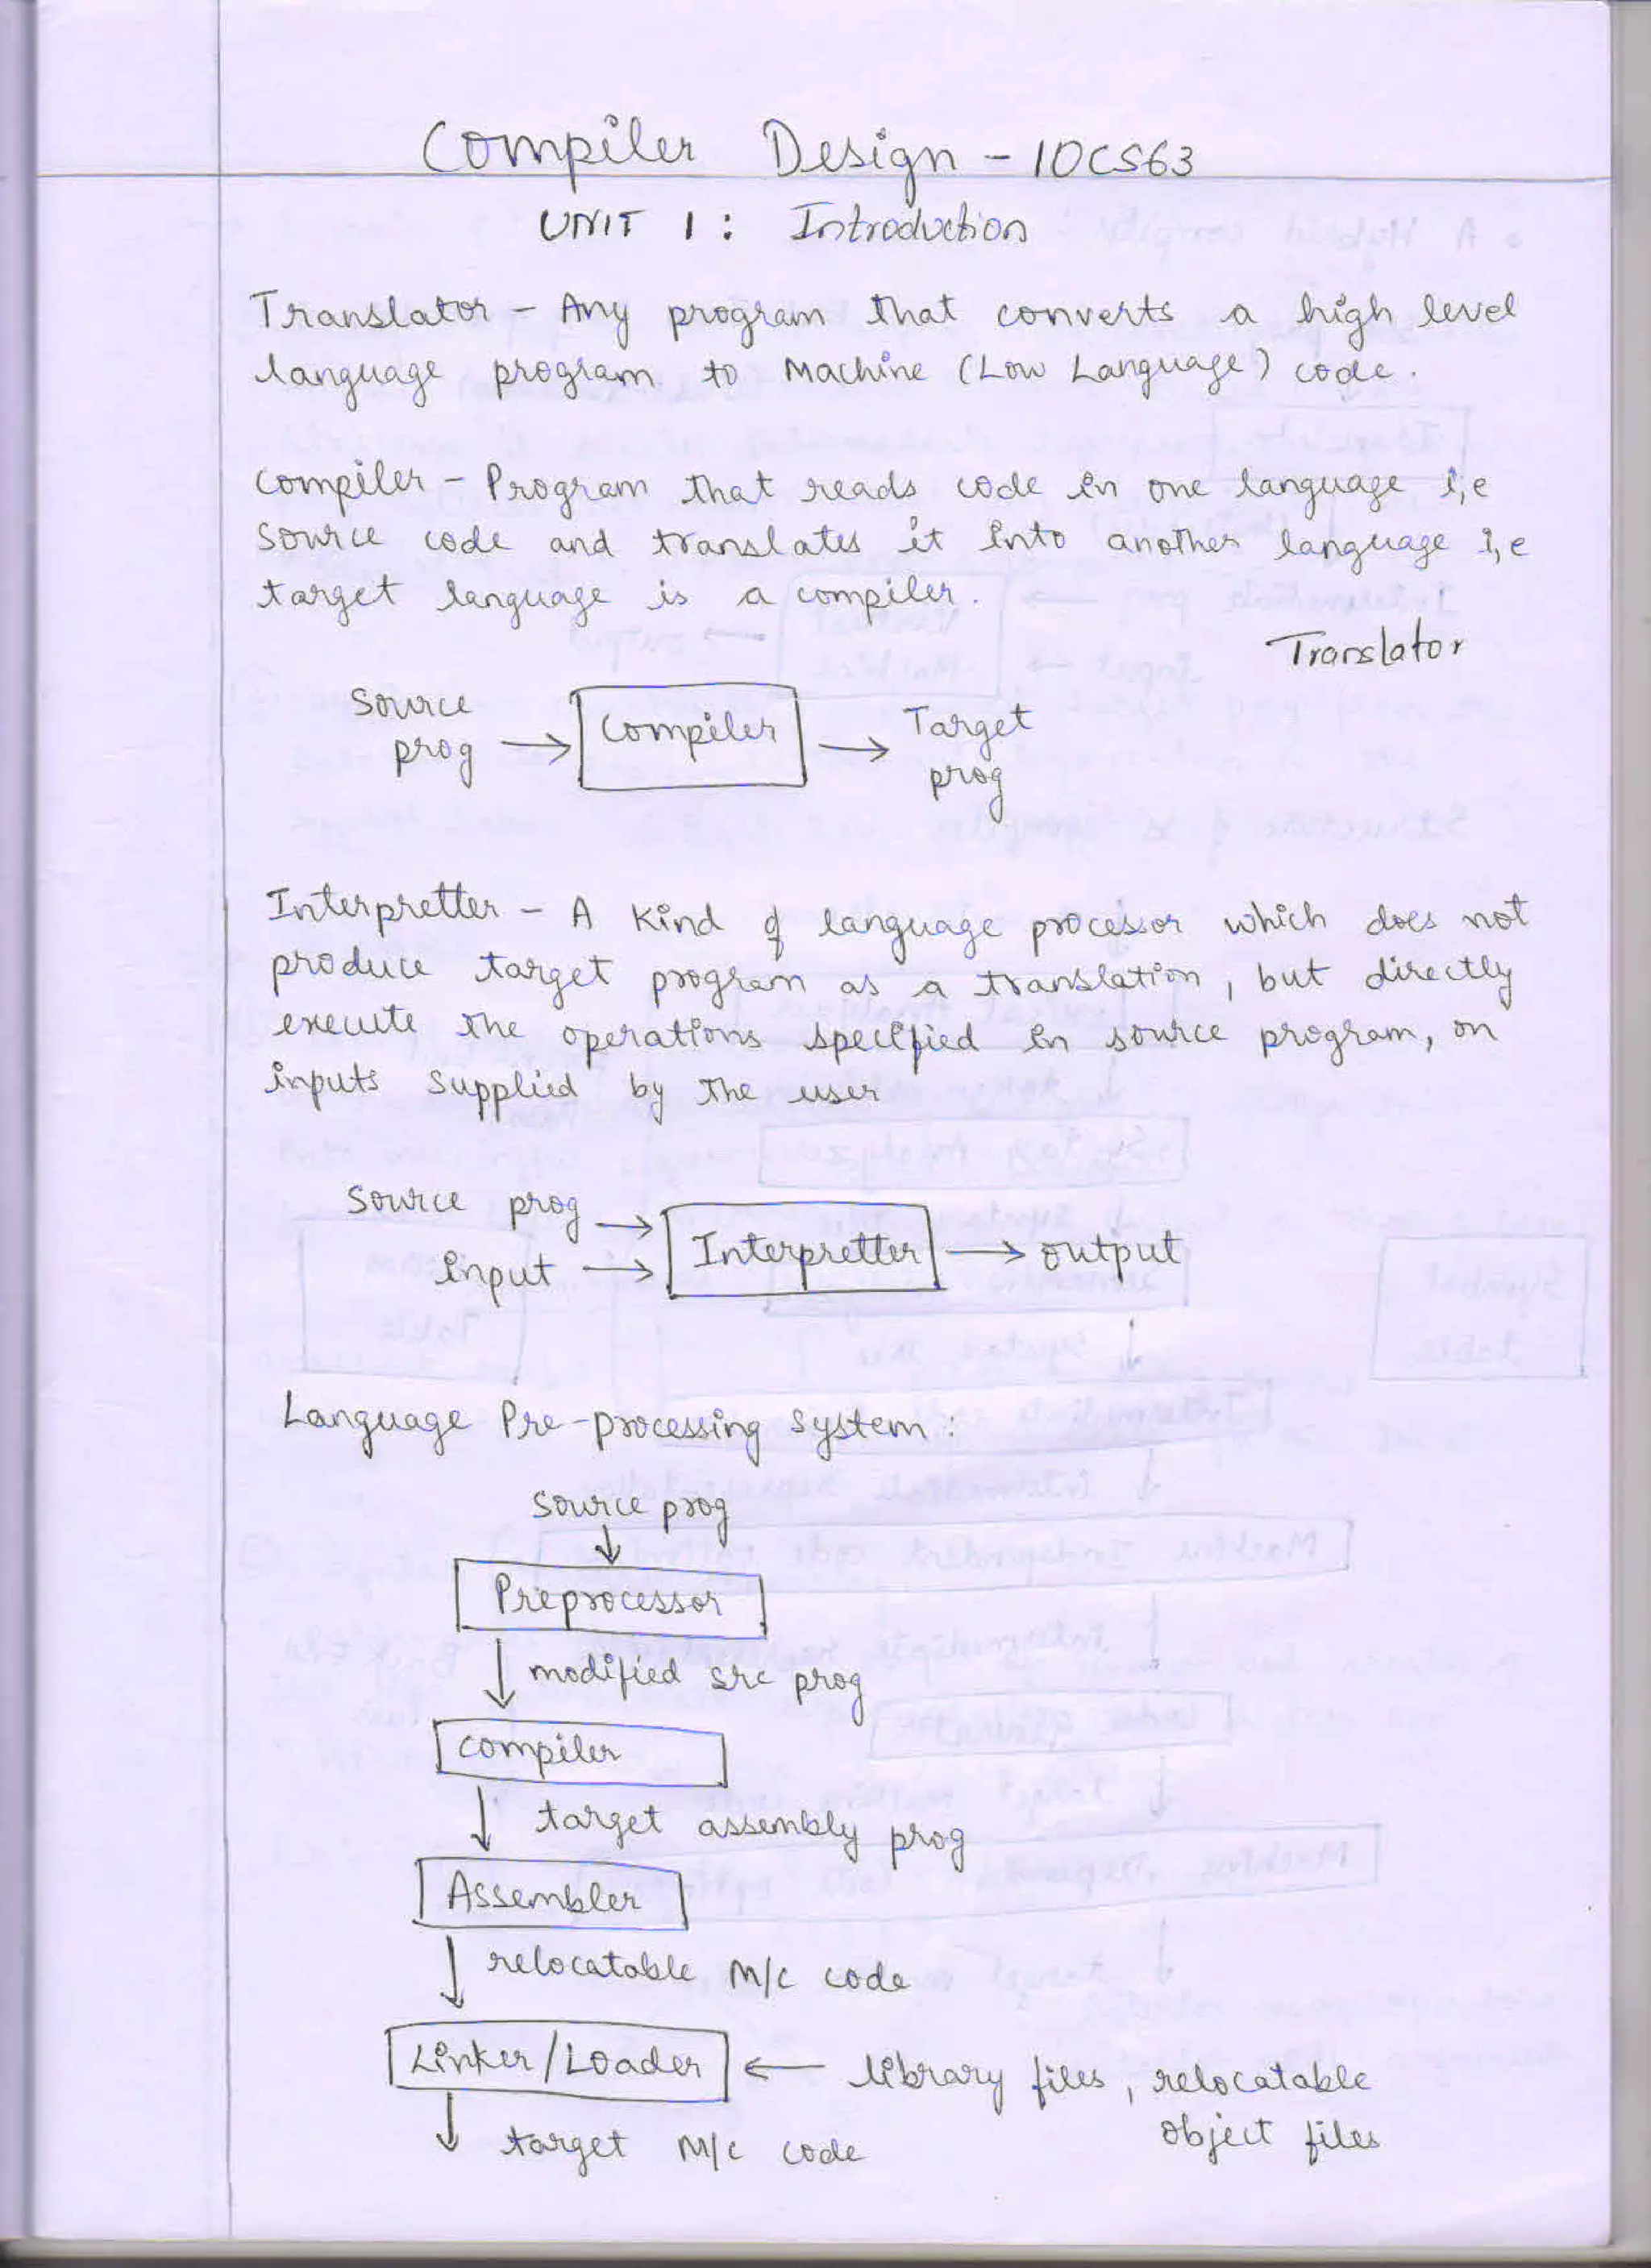 Compiler Design - 10CS63
UNIT 1 : Introduction
Translator - Any program that converts a high level
language program to Machine (Low Language) code.
Compiler - Program that reads code in one language i,e
source code and translates it into another language i,e
target language is a compiler.
Translator
Source
prog → Compiler → Target
prog
Interpretter - A kind of language processor which does not
produce target program as a translation, but directly
execute the operations specified in source program, on
inputs supplied by the user
Source prog →
input → Interpretter → output
Language Pre-processing system :
source prog
↓
Preprocessor
↓ modified src prog
compiler
↓ target assembly prog
Assembler
↓ relocatable M/c code
Linker/Loader ← library files, relocatable
object files
↓ target M/c code